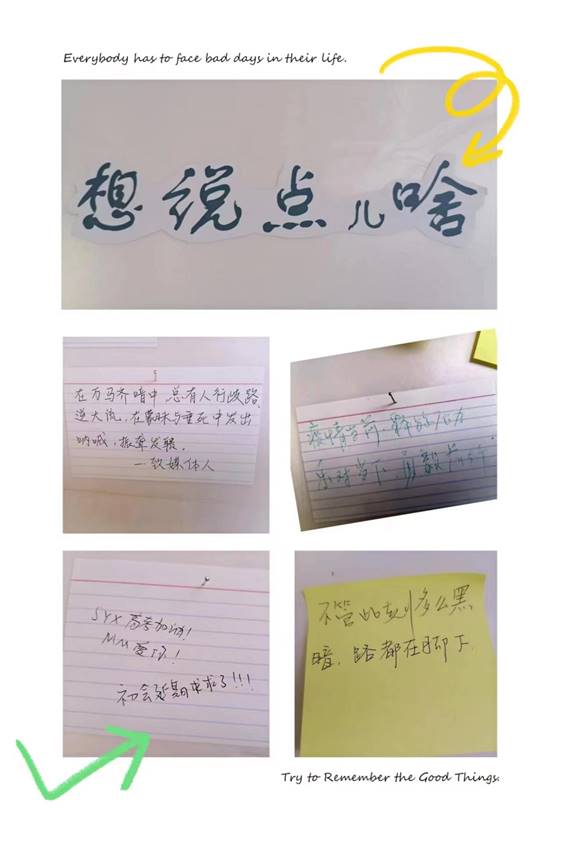 Everybody has to face bad days in their life.
想说点儿啥
在万马齐喑中,总有人行歧路,
逆大流,在蒙昧与垂死中发出
呐喊,振聋发聩。
—致媒体人
疫情当前,释放压力
SYX高考加油!
MM爱你!
初会延期求求了!!!
不管此刻多么黑
暗,路都在脚下.
Try to Remember the Good Things.